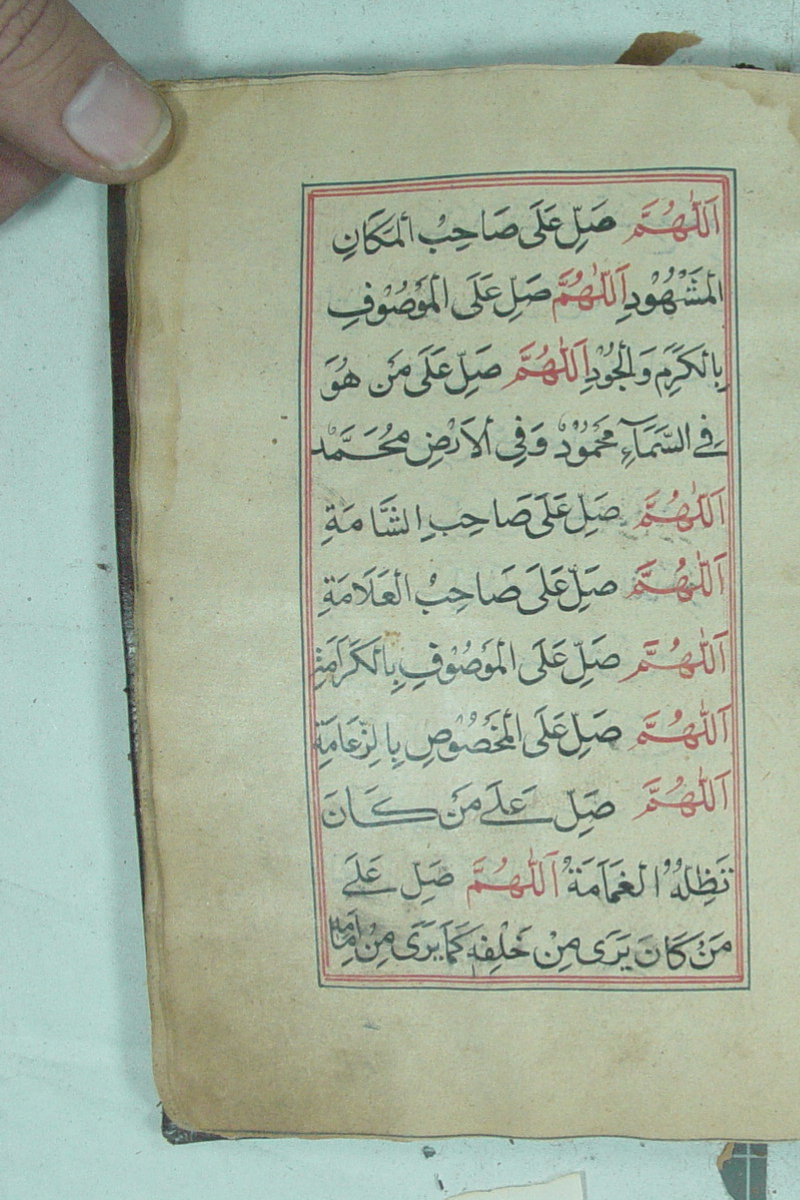 اَللّٰهُمَّ صَلِّ عَلَى صَاحِبِ الْمَكَانِ
الْمَشْهُوْدِ اَللّٰهُمَّ صَلِّ عَلَى الْمَوْصُوْفِ
بِالْكَرَمِ وَالْجُوْدِ اَللّٰهُمَّ صَلِّ عَلَى مَنْ هُوَ
فِي السَّمَآءِ مَحْمُوْدٌ وَفِي الْاَرْضِ مُحَمَّدٌ
اَللّٰهُمَّ صَلِّ عَلَى صَاحِبِ الشَّامَةِ
اَللّٰهُمَّ صَلِّ عَلَى صَاحِبِ الْعَلَامَةِ
اَللّٰهُمَّ صَلِّ عَلَى الْمَوْصُوْفِ بِالْكَرَامَةِ
اَللّٰهُمَّ صَلِّ عَلَى الْمَخْصُوْصِ بِالزَّعَامَةِ
اَللّٰهُمَّ صَلِّ عَلَى مَنْ كَانَ
تَظِلُّهُ الْغَمَامَةُ اَللّٰهُمَّ صَلِّ عَلَى
مَنْ كَانَ يَرَى مِنْ خَلْفِهِ كَمَا يَرَى مِنْ اَمَامِهِ